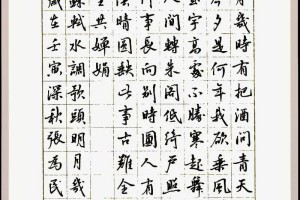 月幾時有把酒問青天
今夕是何年我欲乘風
玉宇高處不勝寒起舞
人間轉朱閣低綺戶照
何事長向別時圓人有
陰晴圓缺此事古難全
里共嬋娟
蘇軾水調歌頭明月幾
歲在壬寅深秋張為民